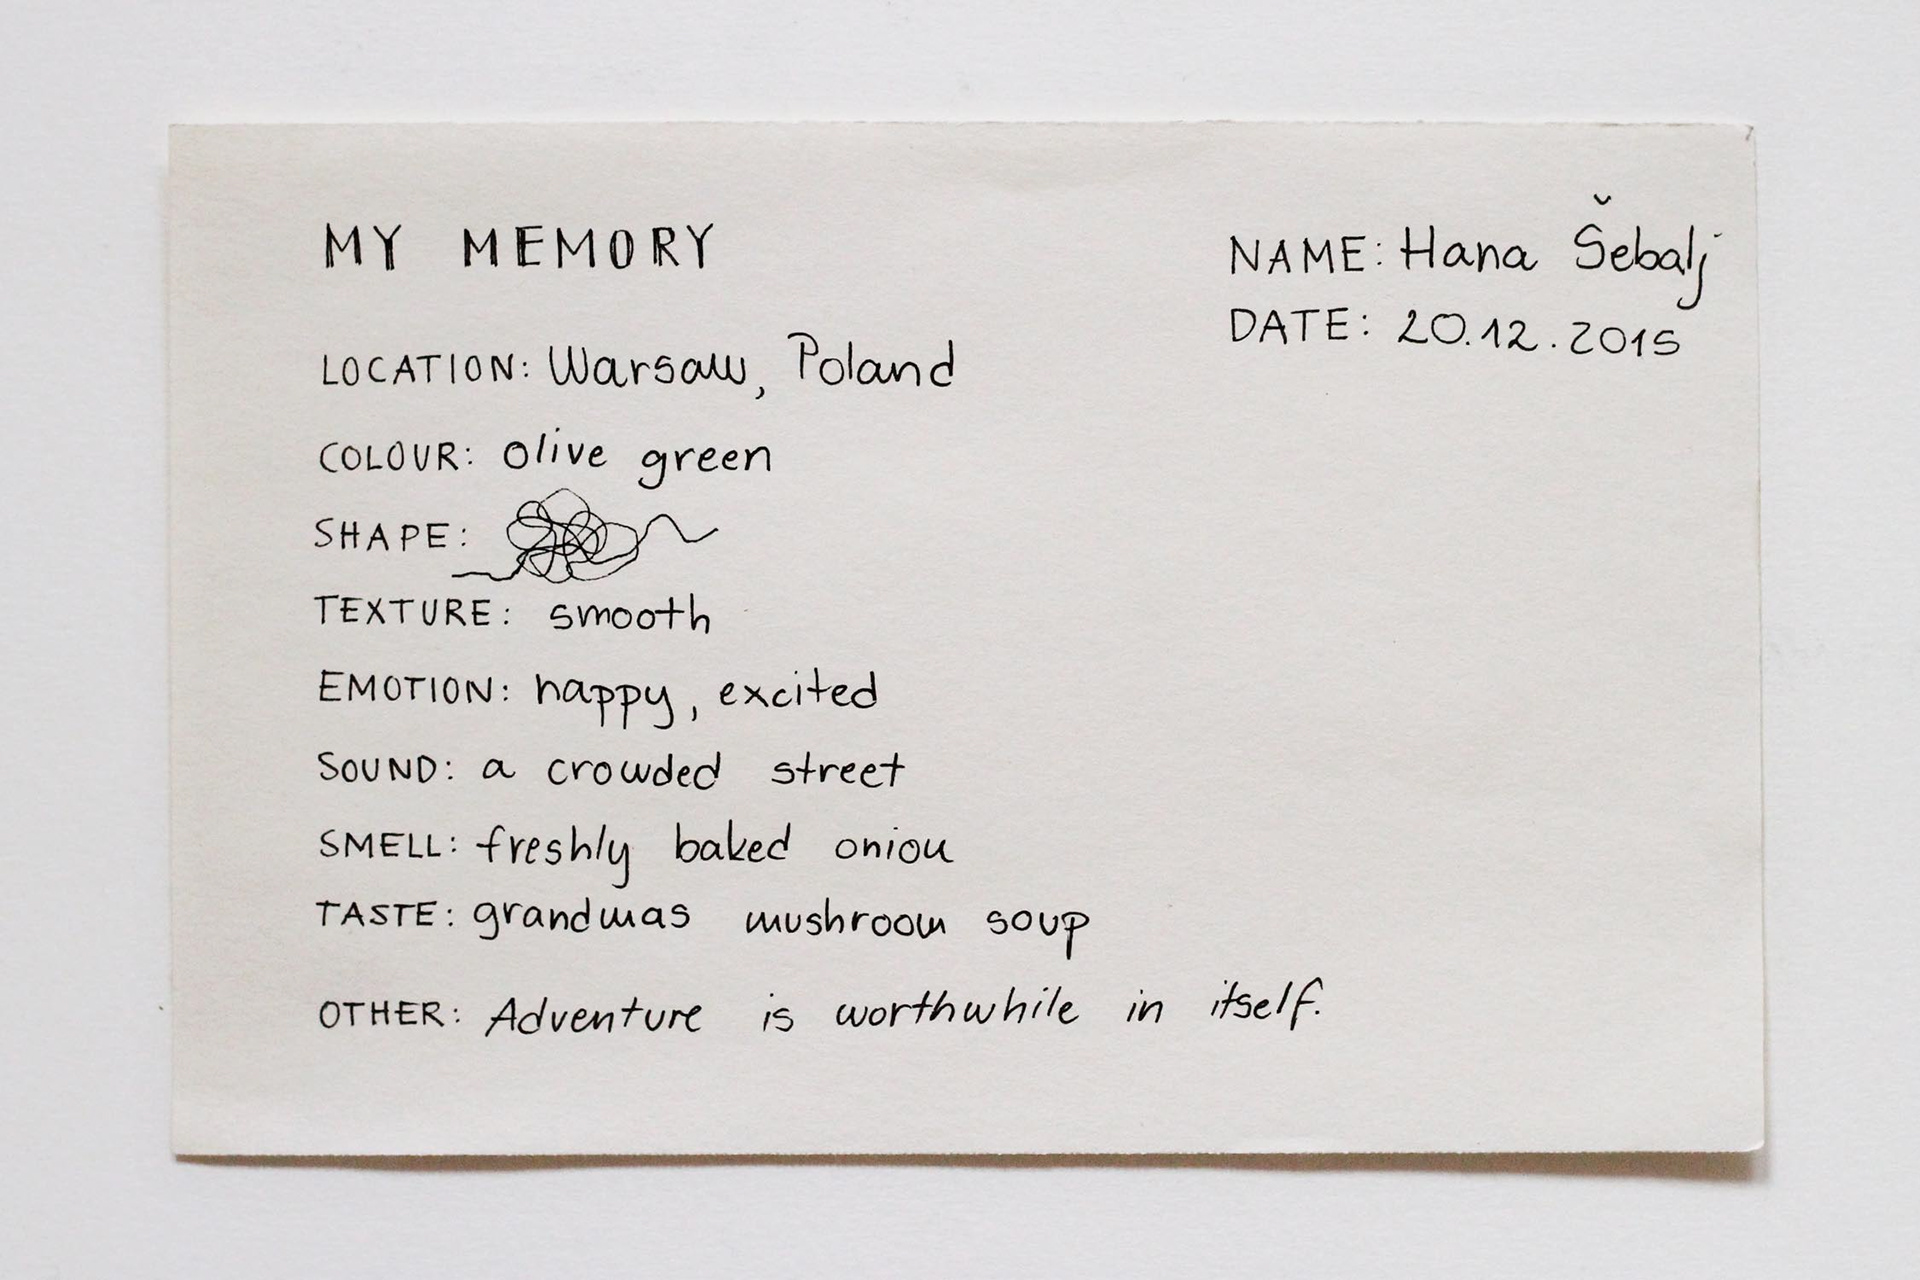 MY MEMORY
NAME: Hana Šebalj
DATE: 20.12.2015
LOCATION: Warsaw, Poland
COLOUR: olive green
SHAPE:
TEXTURE: smooth
EMOTION: happy, excited
SOUND: a crowded street
SMELL: freshly baked onion
TASTE: grandmas mushroom soup
OTHER: Adventure is worthwhile in itself.